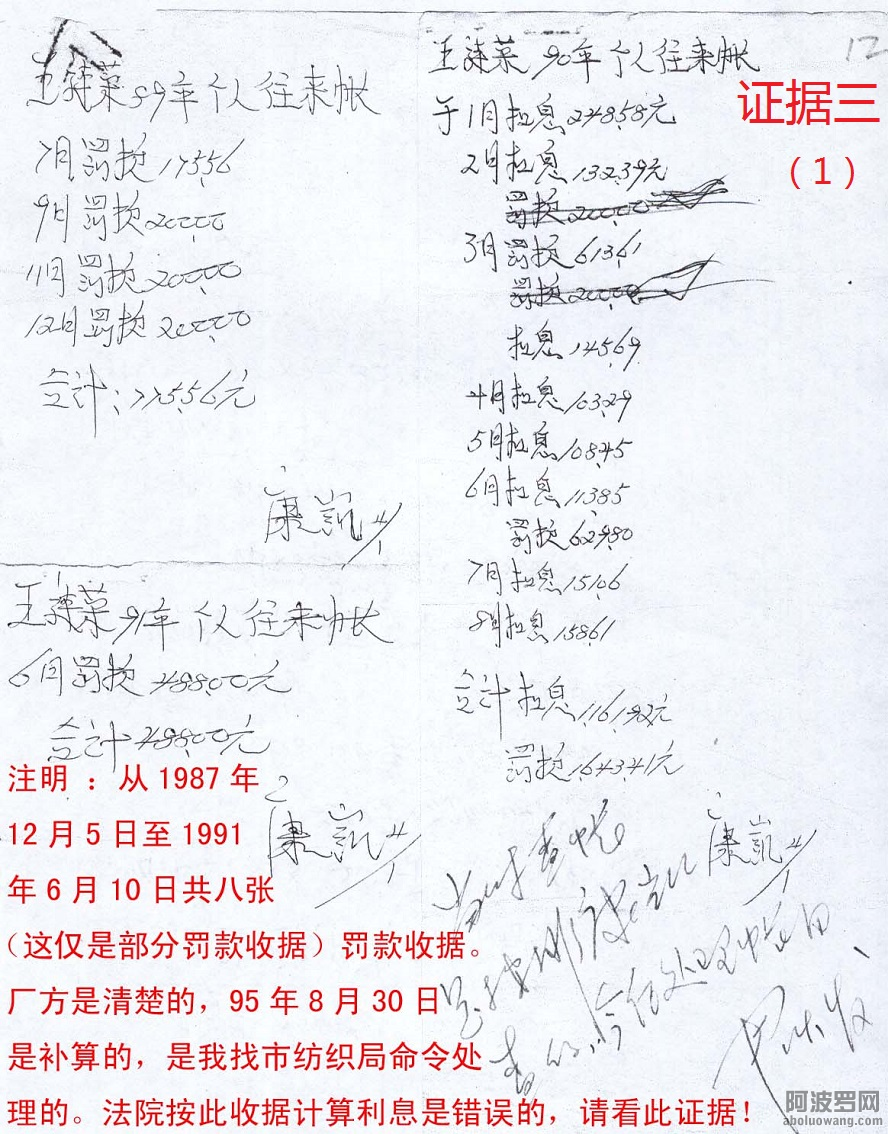 89年个人往来帐
7月罚款175.56
9月罚款200.00
11月罚款200.00
12月罚款200.00
合计:775.56元
康凯 4/1
王 菜91年个人往来帐
6月罚款488.00元
合计488.00元
康凯 4/1
注明 :从1987年
12月5日至1991
年6月10日共八张
(这仅是部分罚款收据)罚款收据。
厂方是清楚的,95年8月30日
是补算的,是我找市纺织局命令处
理的。法院按此收据计算利息是错误的,请看此证据!
12
证据三
(1)
王 菜90年个人往来帐
于1月拉息248.58元
2月拉息132.39元
罚款200.00
3月罚款613.61
罚款200.00
拉息145.69
4月拉息103.29
5月拉息108.45
6月拉息113.85
罚款629.80
7月拉息151.06
8月拉息158.61
合计拉息1,161.92元
罚款1643.41元
康凯 4/1
当时查帐
阿波罗网
aboluowang.com